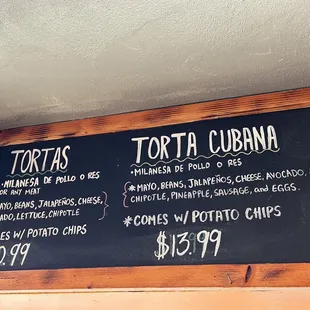 TORTAS
• MILANESA DE POLLO O RES
OR ANY MEAT
AYO, BEANS, JALAPEÑOS, CHEESE,
ADO, LETTUCE, CHIPOTLE
ES W/ POTATO CHIPS
0.99
TORTA CUBANA
• MILANESA DE POLLO O RES
*MAYO, BEANS, JALAPEÑOS, CHEESE, AVOCADO,
CHIPOTLE, PINEAPPLE, SAUSAGE, and EGGS.
*COMES W/ POTATO CHIPS
$13.99